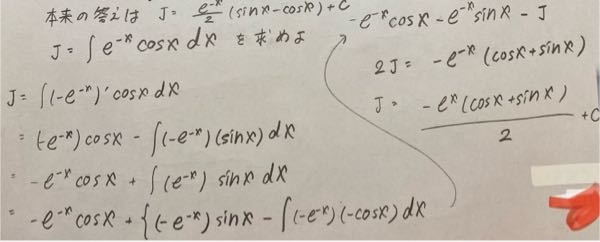 本来の答えは J = e^-x/2 (sinx - cosx) + C
J = ∫e^-x cosx dx を求めよ
J = ∫(-e^-x)' cosx dx
= (-e^-x) cosx - ∫(-e^-x)(sinx) dx
= -e^-x cosx + ∫(e^-x) sinx dx
= -e^-x cosx + {(-e^-x) sinx - ∫(-e^-x)(-cosx) dx
-e^-x cosx - e^-x sinx - J
2J = -e^-x (cosx + sinx)
J = -e^x (cosx + sinx)/2 + C